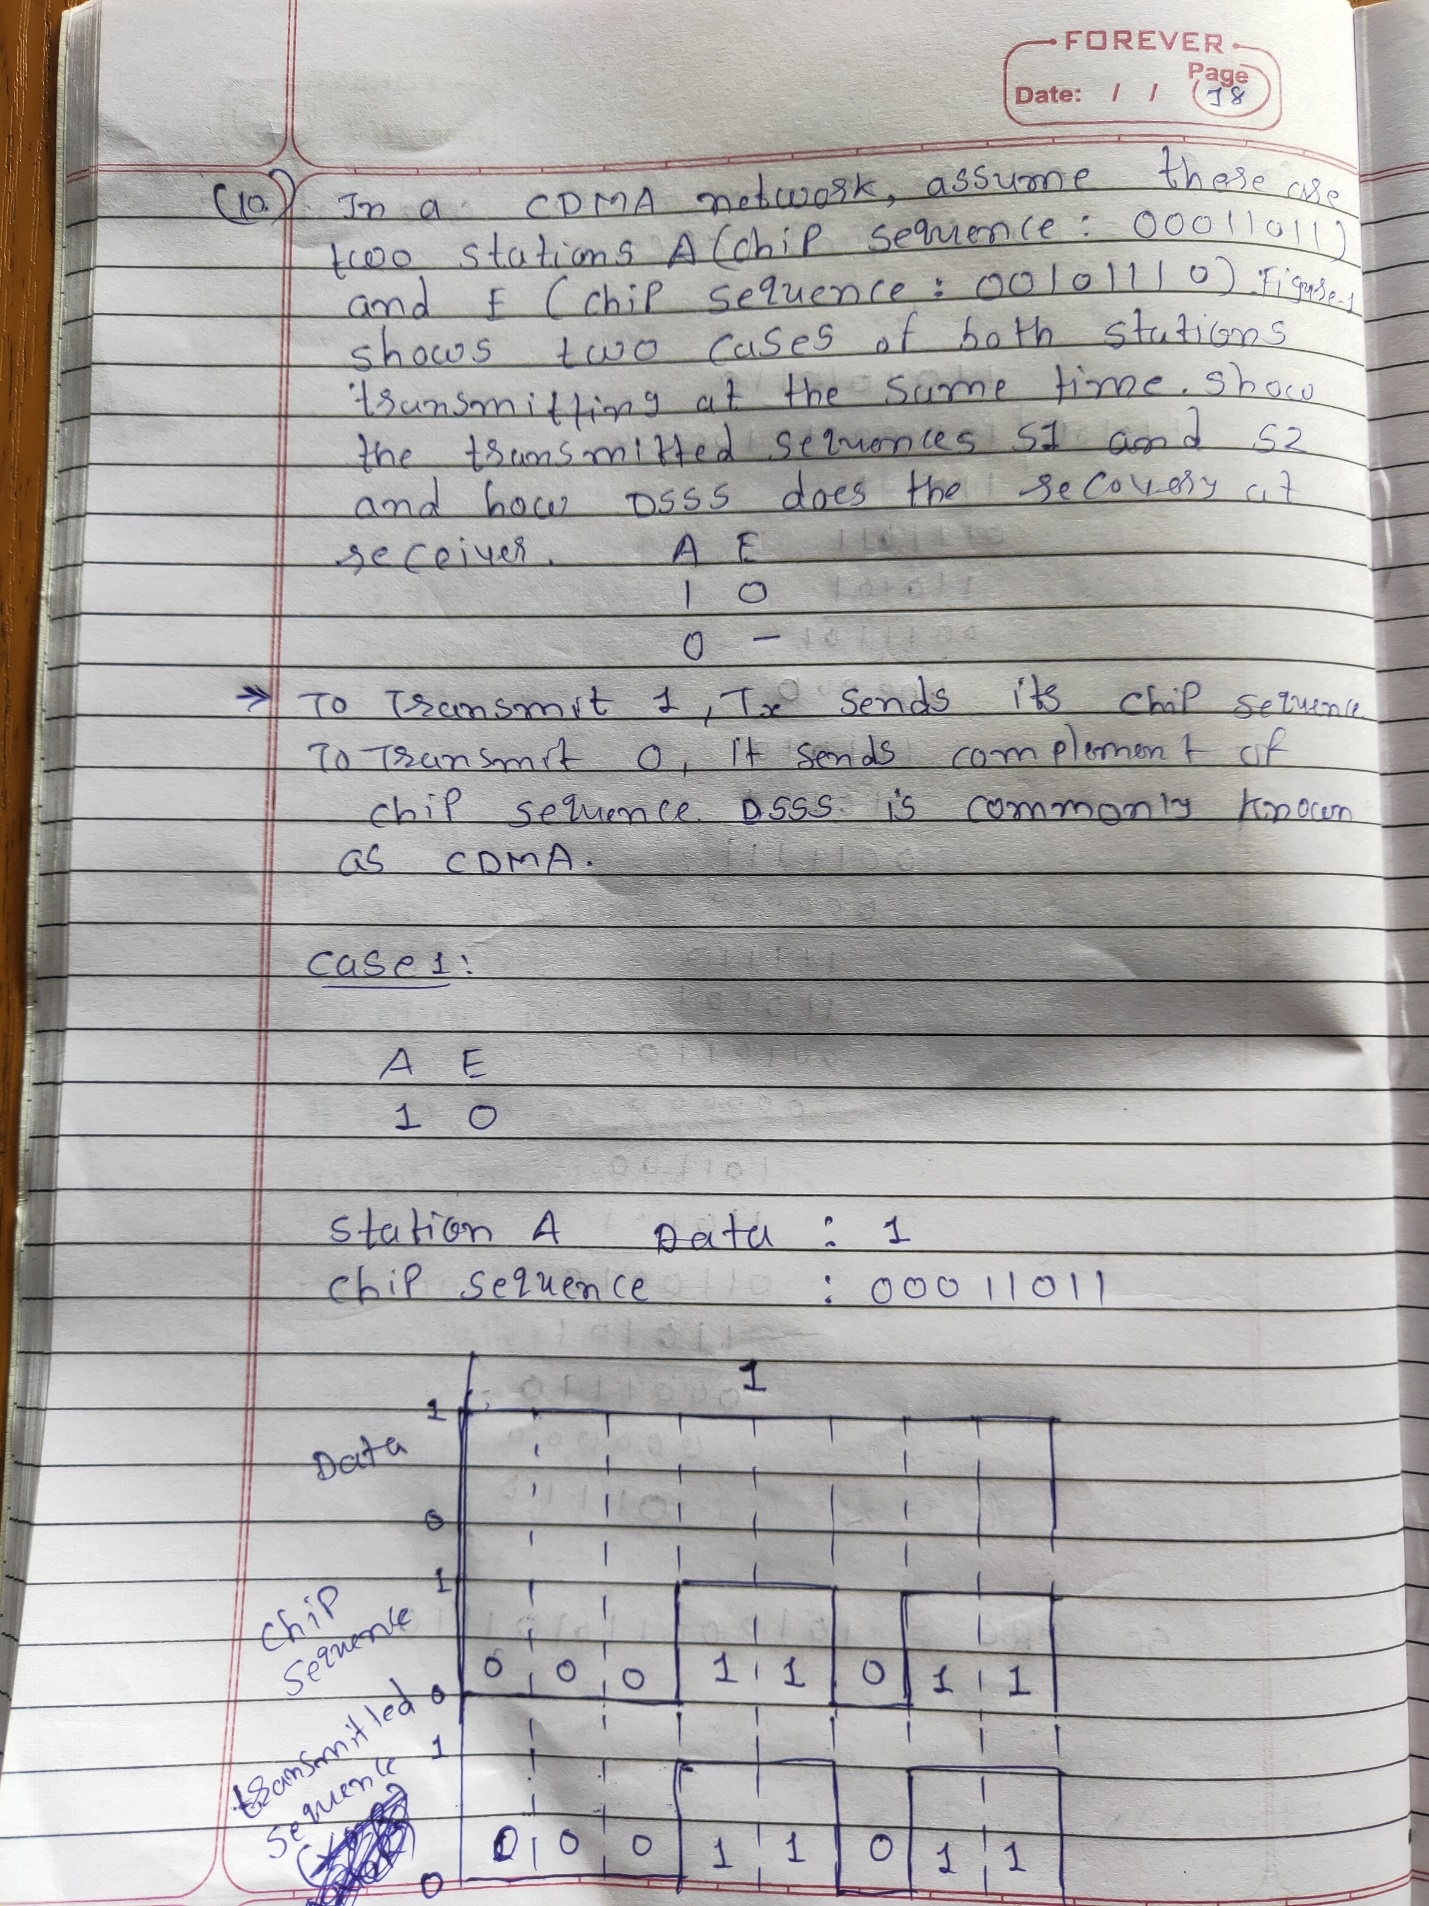 FOREVER
Page
Date: / / 78
(10.) In a CDMA network, assume there are
two stations A (chip sequence: 00011011)
and E (chip sequence: 00101110). Figure-1
shows two cases of both stations
transmitting at the same time. show
the transmitted sequences S1 and S2
and how DSSS does the recovery at
receiver. A E
1 0
0 -
→ To Transmit 1, Tx sends its chip sequence
To Transmit 0, It sends complement of
chip sequence. DSSS is commonly known
as CDMA.
case 1:
A E
1 0
Station A Data : 1
chip sequence : 00011011
1
1
Data
0
1
Chip
Sequence
0 0 0 1 1 0 1 1
0
transmitted
1
sequence
0 0 0 1 1 0 1 1
0